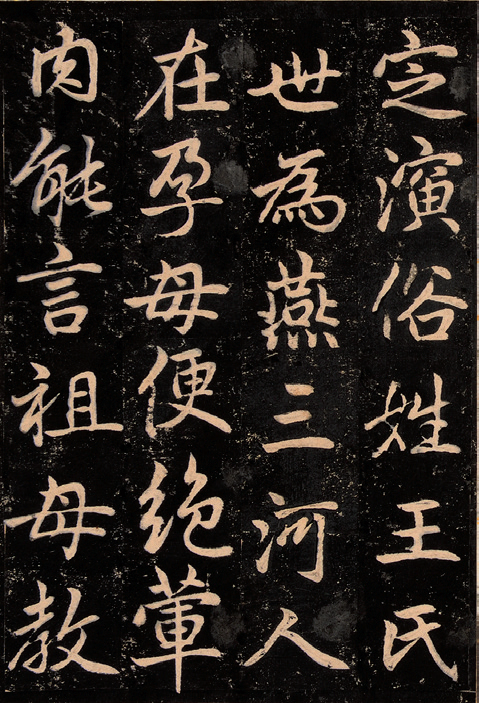 定演俗姓王氏
世為燕三河人
在孕母便絶葷
肉能言祖母教